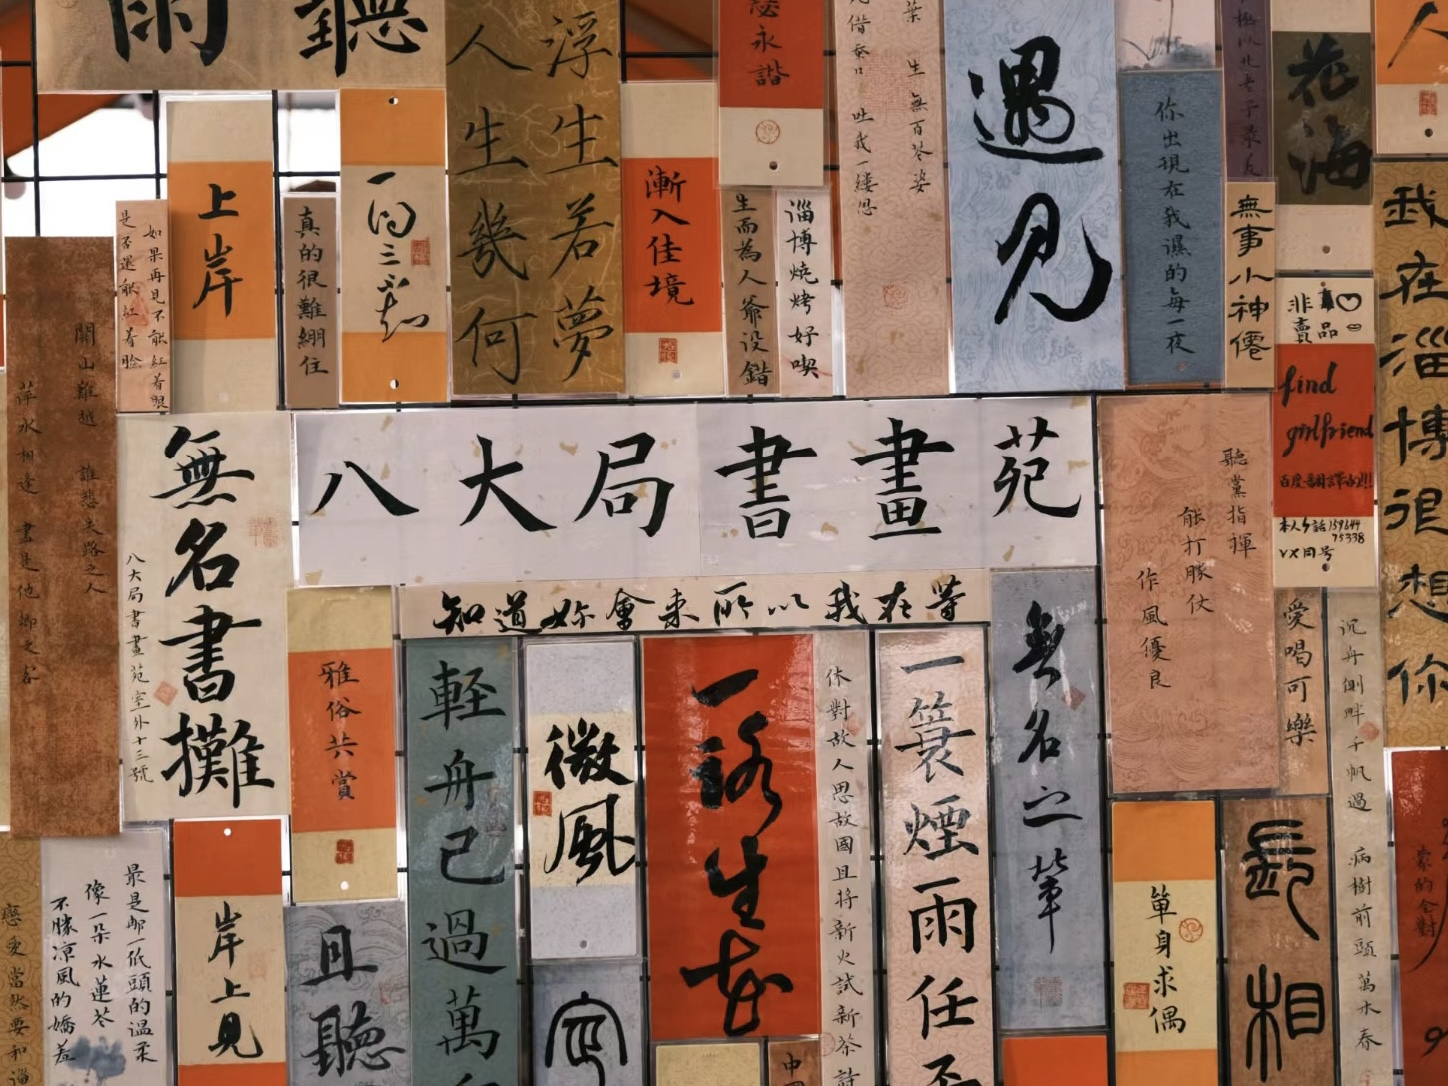 聽雨
浮生若夢
人生幾何
永諧
遇見
你出現在我濕的每一夜
花海
上岸
如果再見不能紅着眼
是否還能紅着臉
真的很難綳住
漸入佳境
生而為人爺没錯
淄博燒烤好喫
吐我一縷思
生無百苓姿
無事小神僊
非賣品
find
girlfriend
百度翻譯的!!!
VX同号
我在淄博很想你
關山難越 誰悲失路之人
萍水相逢 盡是他鄉之客
無名書攤
八大局書畫苑室外十三號
八大局書畫苑
知道妳會來所以我在等
聽黨指揮
能打勝仗
作風優良
雅俗共賞
輕舟已過萬
微風
一路生花
休對故人思故國且將新火試新茶詩
一簑煙雨任
無名之輩
愛唱可樂
沉舟側畔千帆過 病樹前頭萬木春
單身求偶
長相
最是那一低頭的温柔
像一朵水蓮苓
不勝凉風的嬌羞
戀愛當然要和淄
岸上見
且聽
中